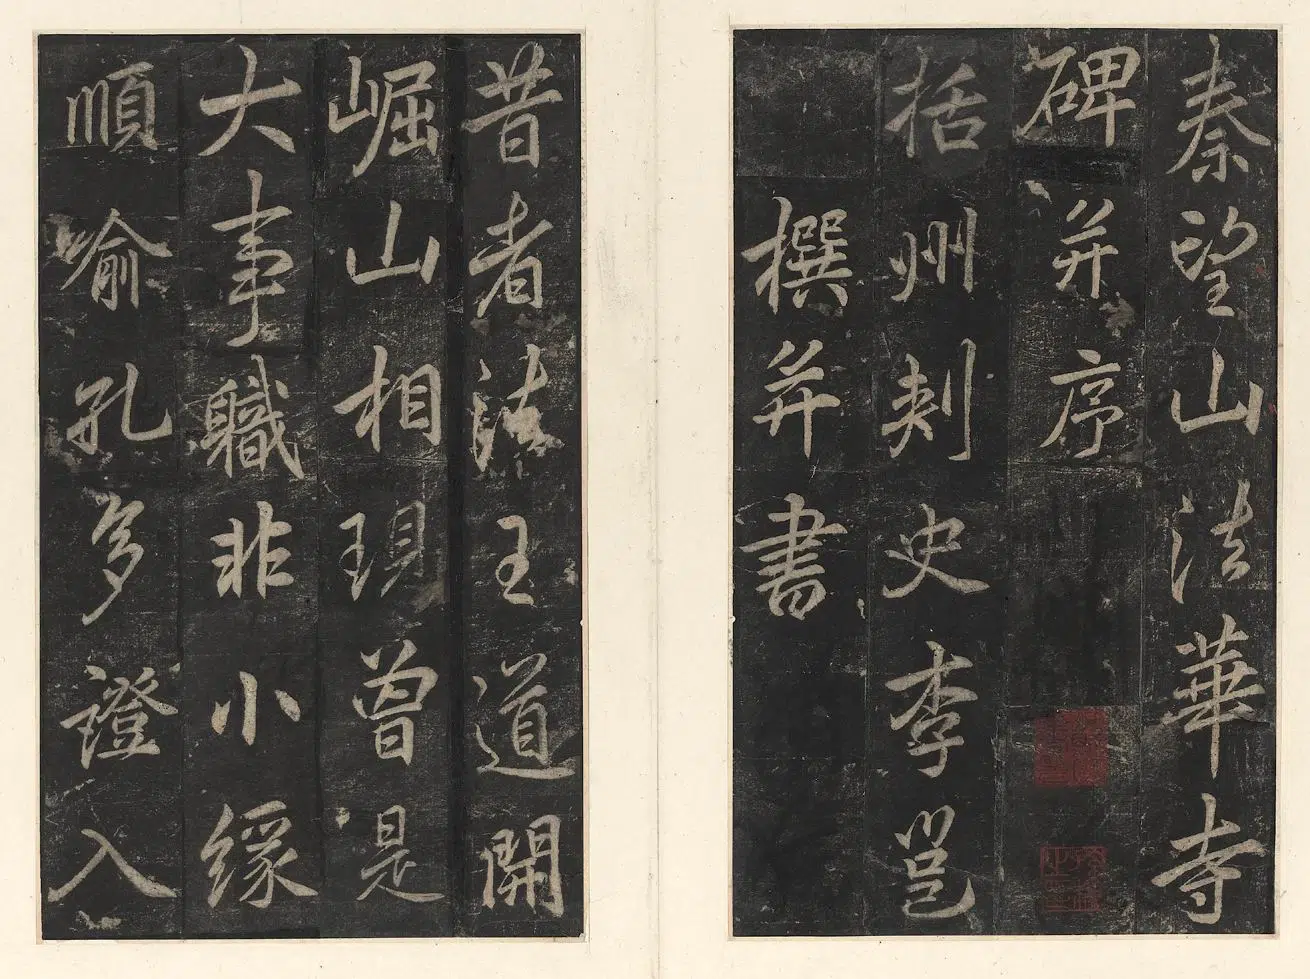 秦望山法華寺
碑并序
括州刾史李邕
撰并書
昔者法王道開
崛山相現曾是
大事職非小緣
順喻孔多證入